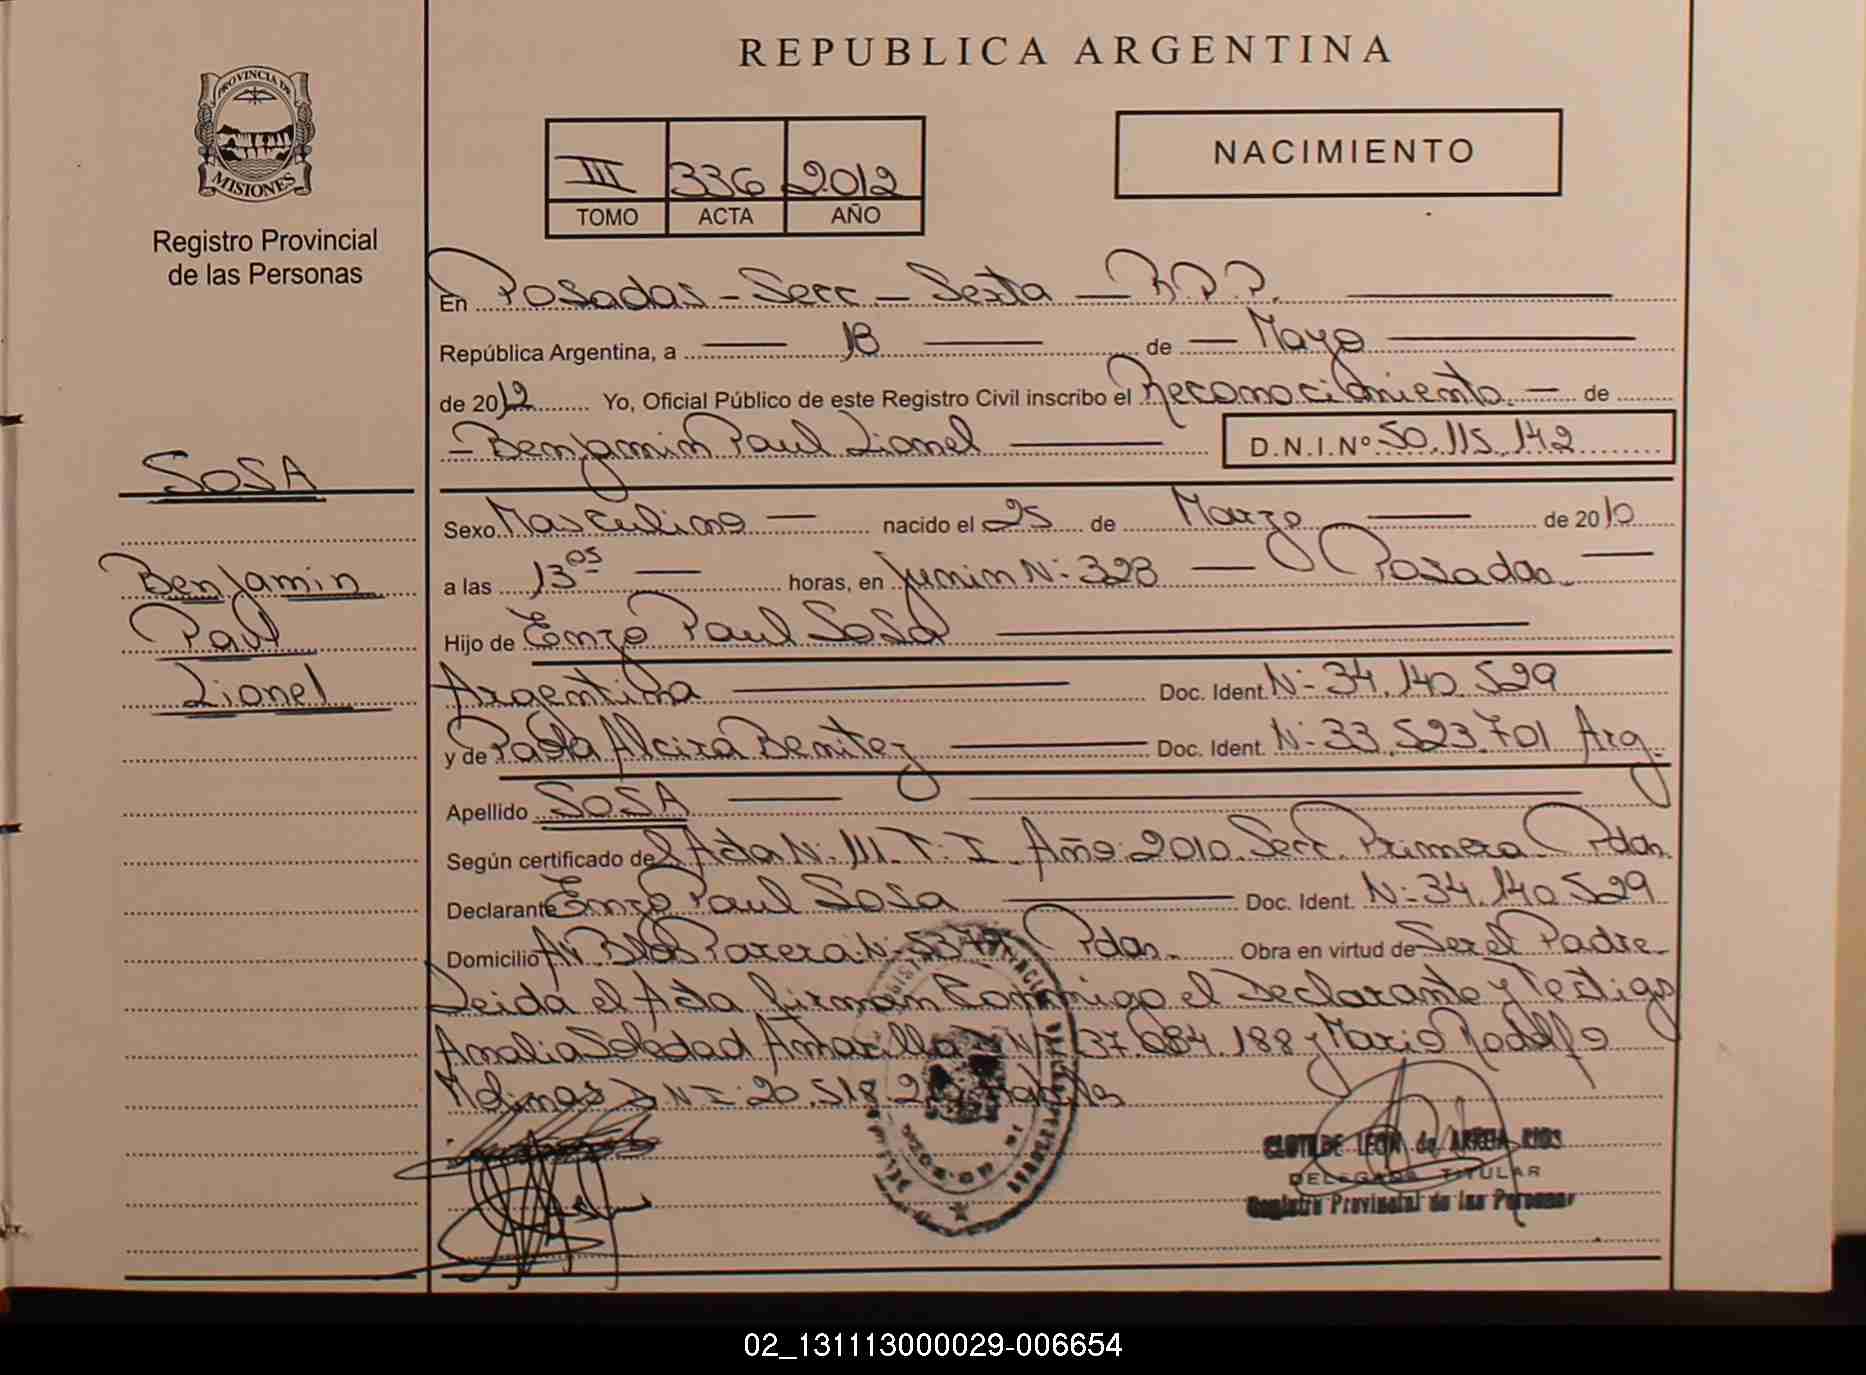 REPUBLICA ARGENTINA
PROVINCIA DE
MISIONES
Registro Provincial
de las Personas
III 336 2012
TOMO ACTA AÑO
NACIMIENTO
En Posadas - Secc - Sexta - R.P.P.
República Argentina, a 18 de Mayo
de 2012 Yo, Oficial Público de este Registro Civil inscribo el Reconocimiento de
Benjamin Paul Lionel D.N.I.Nº 50.115.142
SOSA
Benjamin
Paul
Lionel
Sexo Masculino nacido el 25 de Marzo de 2010
a las 13 05 horas, en Junin N: 328 Posadas
Hijo de Enzo Paul Sosa
Argentina Doc. Ident. N: 34.140.529
y de Paola Alcira Benitez Doc. Ident. N: 33.523.701 Arg.
Apellido SOSA
Según certificado del Acta N: 111. T: I. Año: 2010. Secc. Primera Pdas.
Declarante Enzo Paul Sosa Doc. Ident. N: 34.140.529
Domicilio Av. Blas Parera N: Pdas. Obra en virtud de Ser el Padre
Leida el Acta firman Conmigo el Declarante y Testigo
Amalia Soledad Antarilla DNI 37.084.188 y Mario Rodolfo
Molinas DNI: 20.518. Habiles
CLOTILDE LEON de RIOS
DELEGADA TITULAR
Registro Provincial de las Personas
02_131113000029-006654